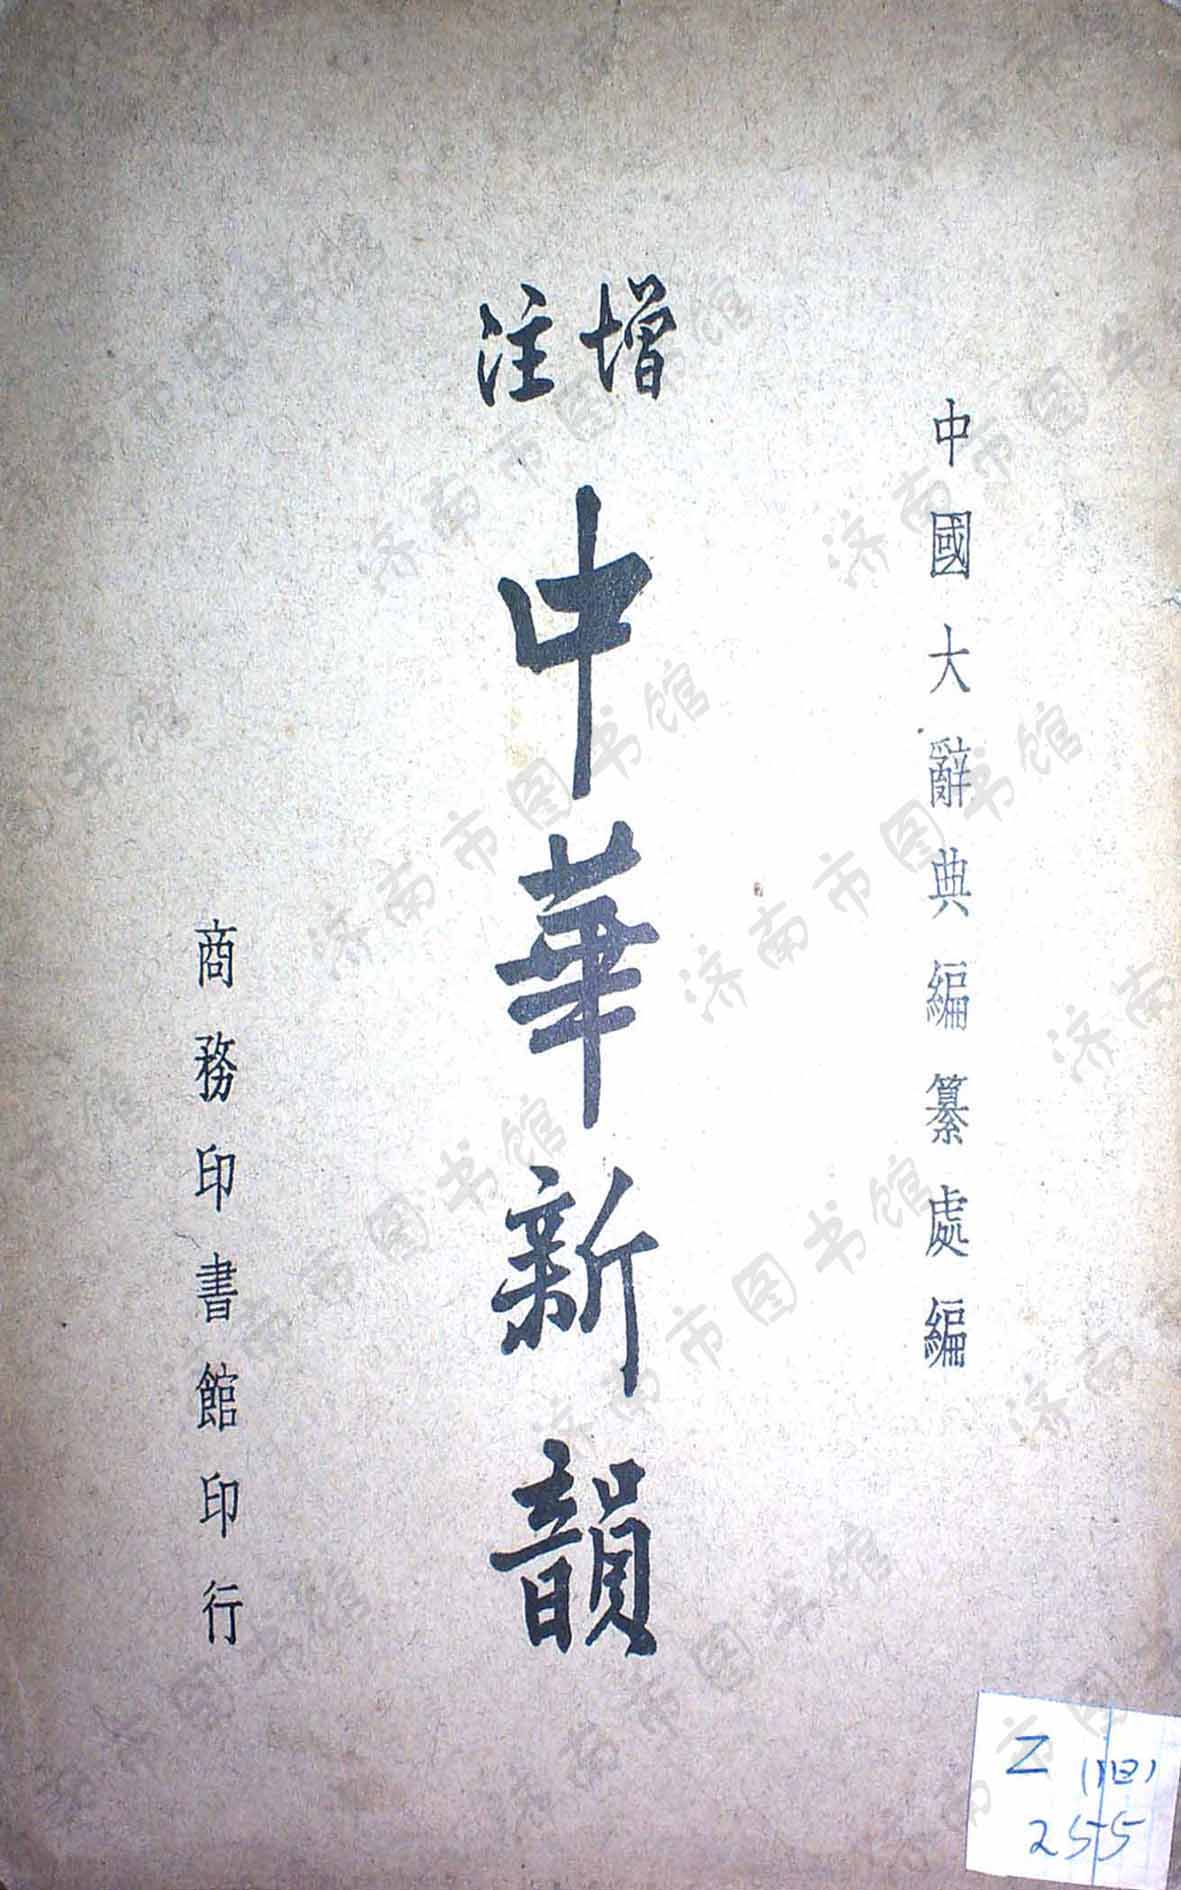 中國大辭典編纂處編
增注
中華新韻
商務印書館印行
Z (旧)
255
济南市图书馆